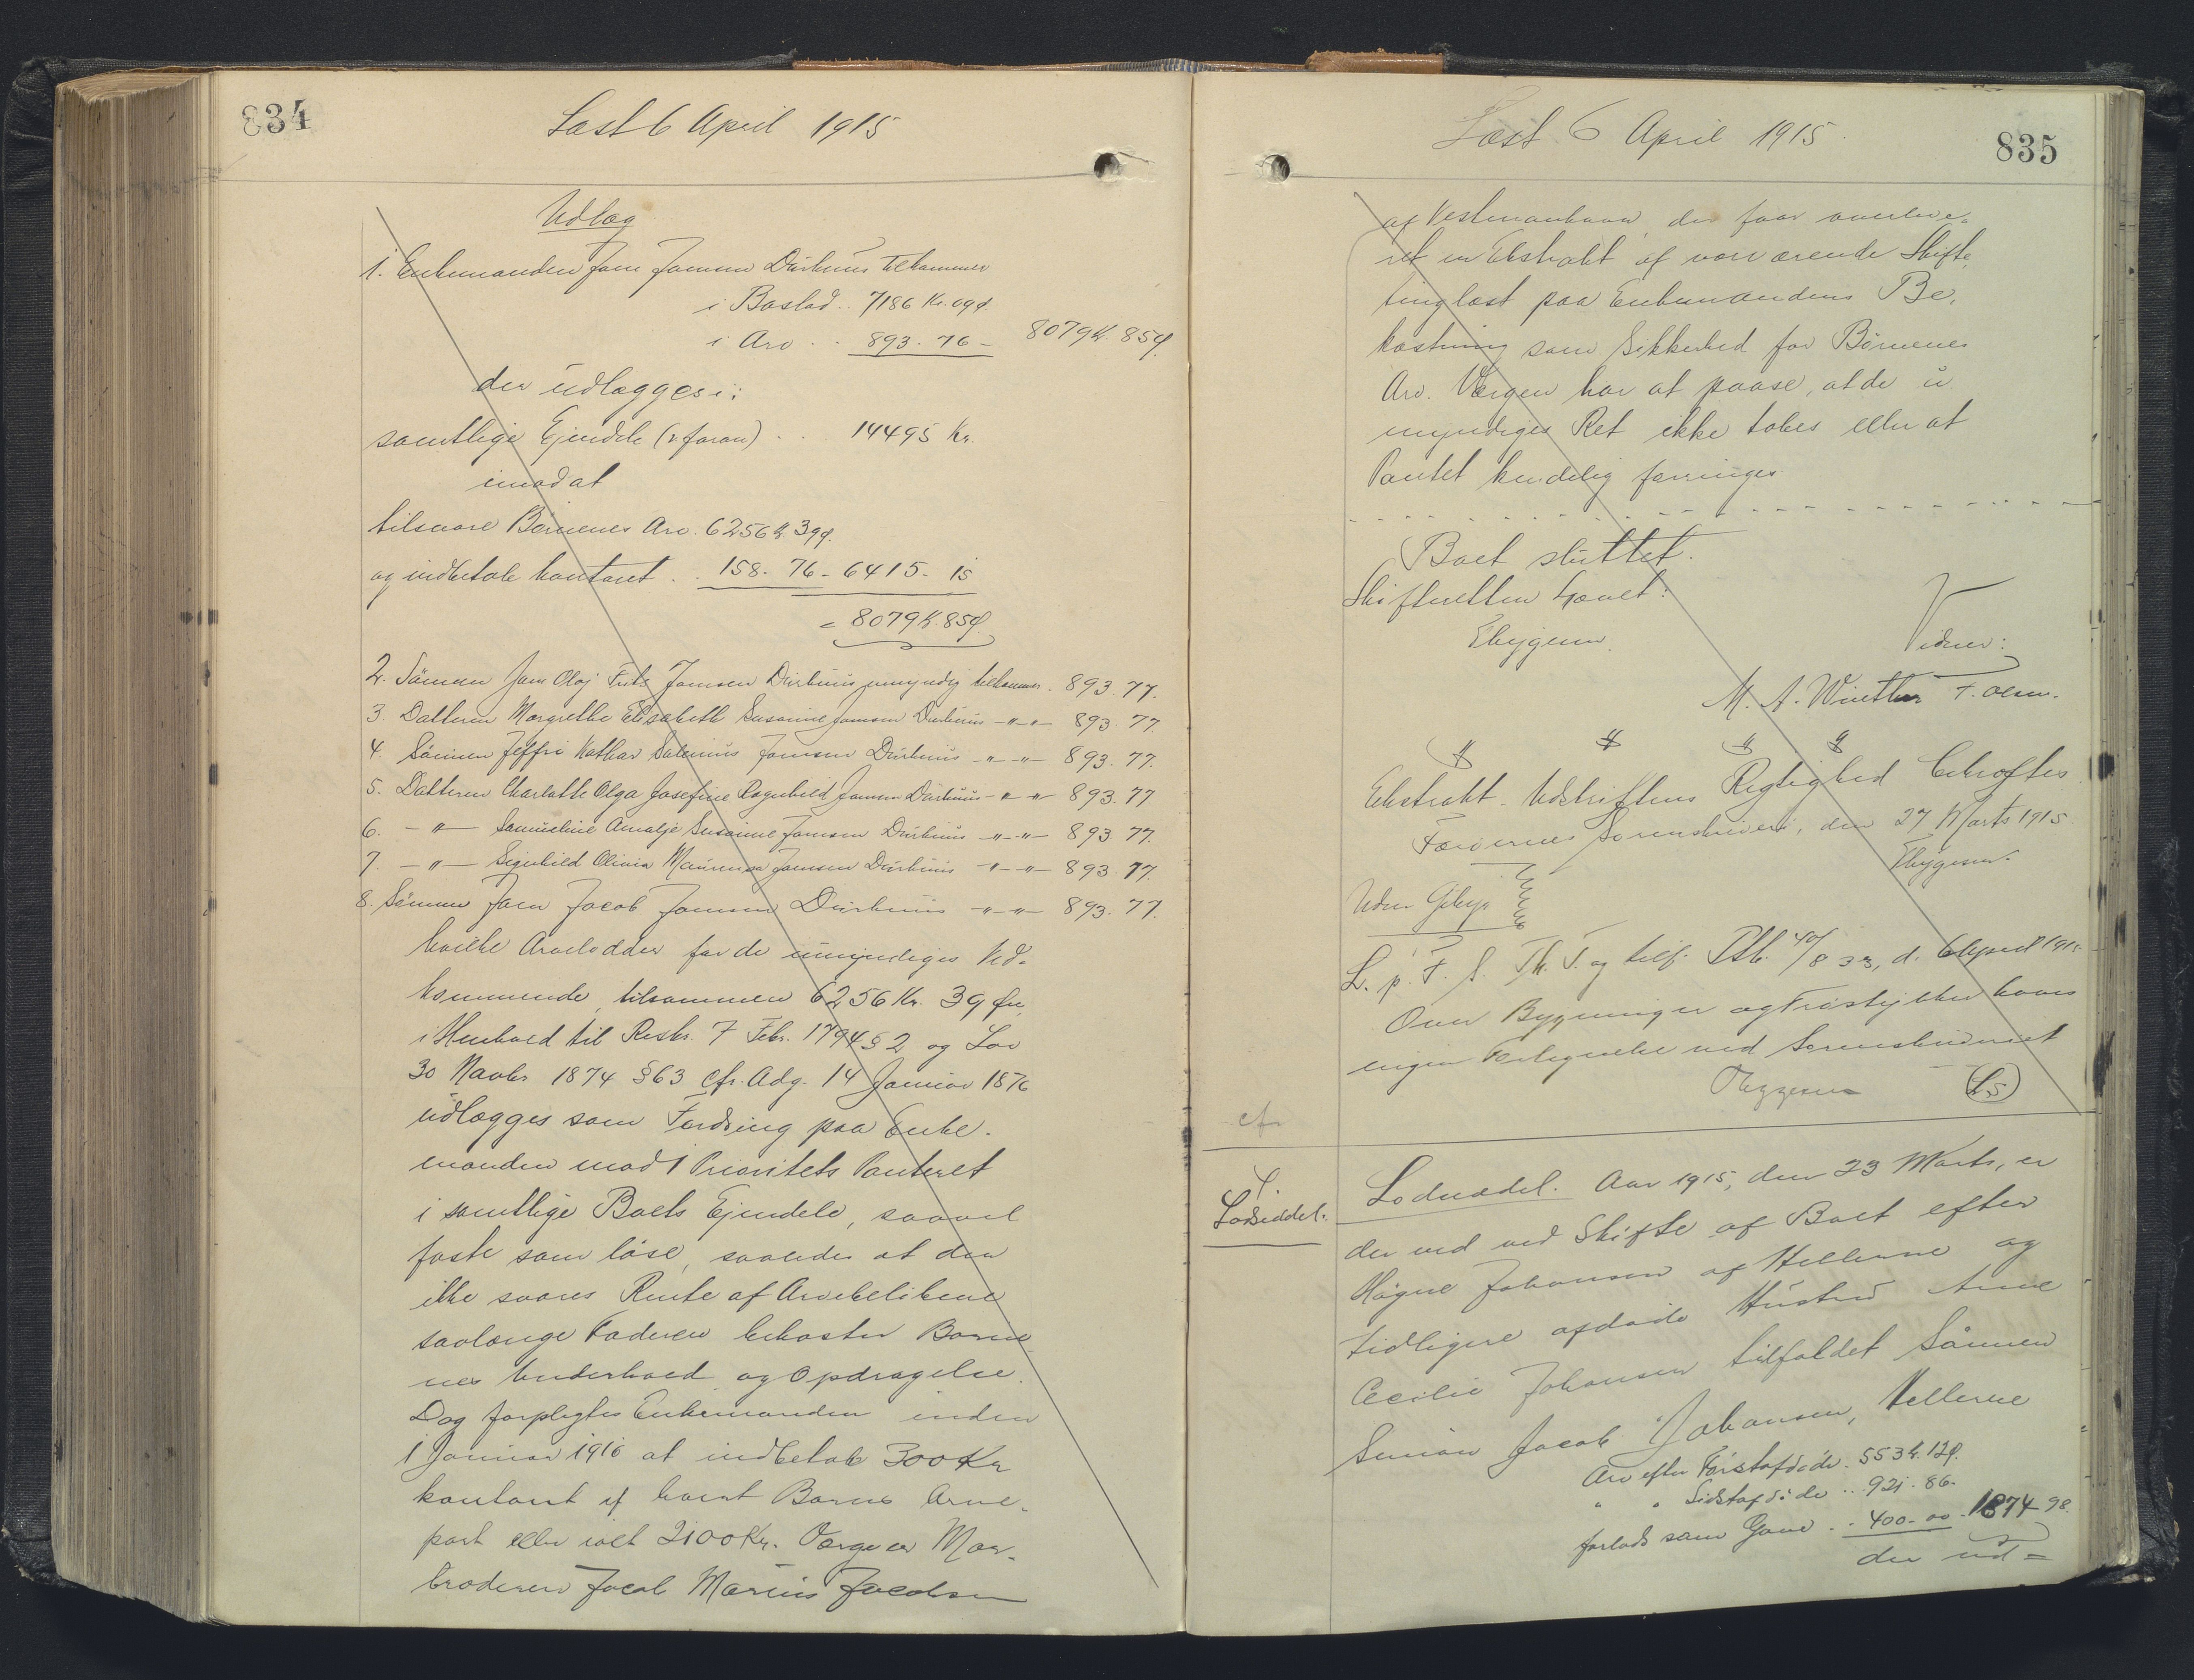 834
Læst 6 April 1915
Udlæg
1. Enkemanden Joen Joensen Dürhuus tilkommer
i Boslod .. 7186 Kr. 09 Ø
i Arv .. 893. 76 - 8079 Kr. 85 Ø.
der udlægges i:
samtlige Ejendele (v. foran) .. 14495 Kr.
imod at
tilsvare Börnenes Arv. 6256 Kr 39 Ø.
og indbetale kontant .. 158. 76 - 6415. 15
= 8079 Kr. 85 Ø
2. Sönnen Joen Olaj Fritz Joensen Dürhuus umyndig tilkommer . 893. 77.
3. Datteren Margrethe Elisabeth Susanne Joensen Dürhuus -"-"- 893. 77
4. Sönnen Jeffri Joensen Dürhuus -"-"- 893. 77.
5. Datteren Charlotte Olga Josefine Ragnhild Joensen Dürhuus -"-"- 893. 77
6. -"- Samueline Amalje Susanne Joensen Dürhuus -"-"- 893. 77.
7. -"- Signhild Olivia Joensen Dürhuus -"-"- 893. 77.
8. Sönnen Joen Jacob Joensen Dürhuus -"-"- 893. 77.
hvilke Arvelodder for de umyndiges Ved-
kommende, tilsammen 6256 Kr. 39 Øre,
i Henhold til Reskr. 7 Febr. 1794 § 2 og Lov
30 Novbr 1874 § 63 cfr. Adg. 14 Januar 1876
udlægges som Fordring paa Enke-
manden mod 1 Prioritets Panteret
i samtlige Boets Ejendele, saavel
faste som löse, saaledes at der
ikke svares Rente af Arvebelöbene
saalænge Faderen bekoster Börne-
nes Underhold og Opdragelse.
Dog forpligtes Enkemanden inden
1 Januar 1916 at indbetale 300 Kr
kontant af hvert Barns Arve-
part eller ialt 2100 Kr. Værge er Mor-
broderen Jacob Marius Jacobsen
Læst 6 April 1915.
835
af Vestmanhavn, der faar overleve-
ret en Ekstrakt af nærværende Skifte
tinglæst paa Enkemandens Be-
kostning som Sikkerhed for Börnenes
Arv. Værgen har at paase, at de u-
myndiges Ret ikke tabes eller at
Pantet kendelig forringes
Boet sluttet.
Skifteretten hævet:
Vidner:
M. A. Winther F. Olsen.
Ekstrakt-Udskriftens Rigtighed bekræftes
Færöernes Sorenskriveri, den 27 Marts 1915
Uden Gebyr
L. p. F. S. Th. T. og tilf. Ptb. 40/833, d. 6 April 1915
Over Bygninger og Træstykker haves
ingen Fortegnelse ved Sorenskriveriet
(LS)
cfr.
Lodseddel.
Lodseddel. Aar 1915, den 23 Marts, er
der ved ved Skifte af Boet efter
Högne Johansen af Hellerne og
tidligere afdöde Hustru Anne
Cecilie Johansen tilfaldet Sönnen
Simon Jacob Johansen, Hellerne
Arv efter Förstafdöde . 553 Kr. 12 Ø.
" " Sidstafdöde .. 921. 86.
forlods som Gave .. 400. 00 . 1874. 98.
der ud=